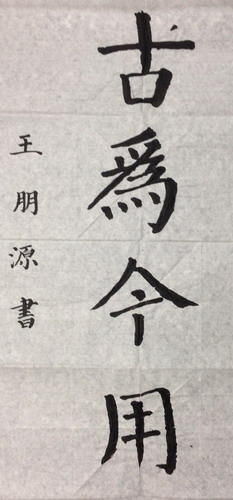 古為今用
王朋源書